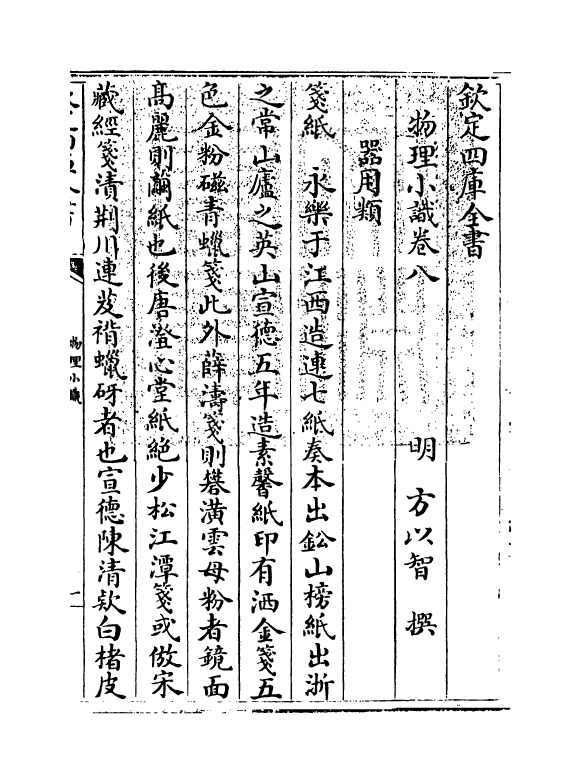 欽定四庫全書
物理小識卷八
明 方以智 撰
器用類
箋紙 永樂于江西造連七紙奏本出鈆山榜紙出浙
之常山廬之英山宣德五年造素馨紙印有洒金箋五
色金粉磁青蠟箋此外薛濤箋則礬潢雲母粉者鏡面
高麗則繭紙也後唐澄心堂紙絶少松江潭箋或倣宋
藏經箋漬荆川連芨褙蠟砑者也宣德陳清欵白楮皮
物理小識